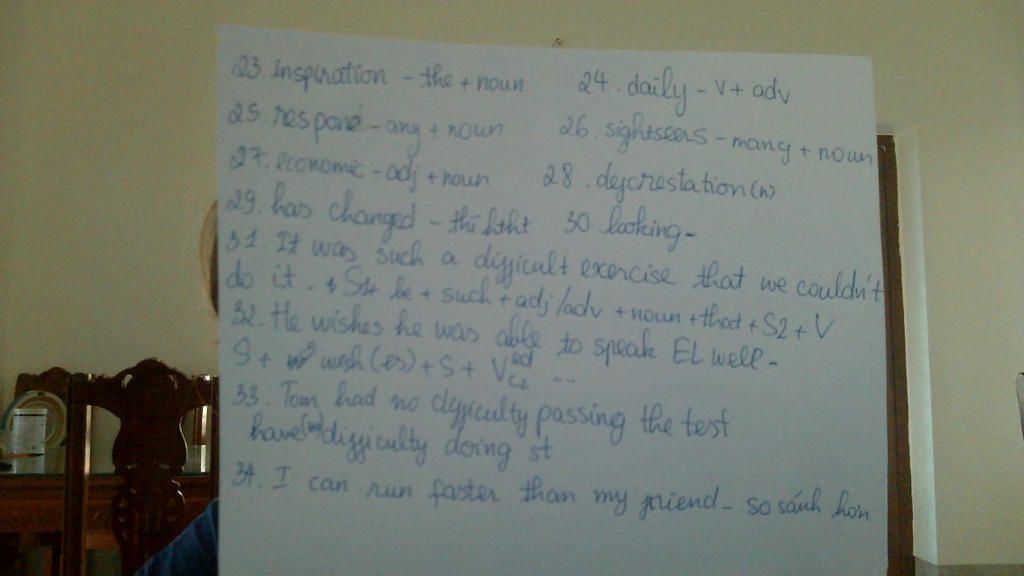 23. inspiration - the + noun 24. daily - V + adv
25. respone - any + noun 26. sightseers - many + noun
27. economic - adj + noun 28. deforestation (n)
29. has changed - thì htht 30. looking -
31. It was such a difficult exercise that we couldn't
do it. * S1 + be + such + adj/adv + noun + that + S2 + V
32. He wishes he was able to speak EL well -
S + wish(es) + S + Ved c2 ...
33. Tom had no difficulty passing the test
have (no) difficulty doing st
34. I can run faster than my friend - so sánh hơn